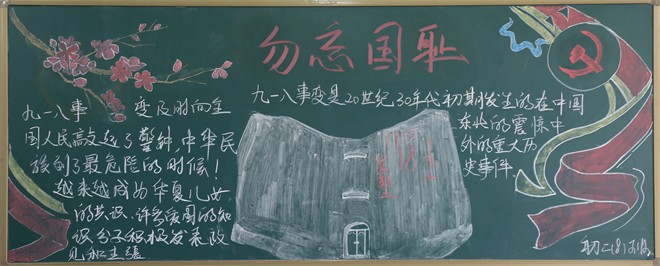 勿忘国耻
九一八事 变及时向全
国人民敲起了警钟,中华民
族到了最危险的时候!
越来越成为华夏儿女
的共识,许多爱国的知
识分子积极发表政
见和主張.
九一八事变是20世纪30年代初期发生的在中国
东北的震惊中
外的重大历
史事件.
初二(8)